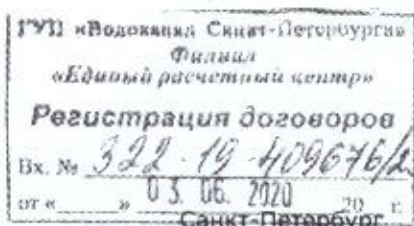 ГУП «Водоканал Санкт-Петербурга»
Филиал
«Единый расчетный центр»
Регистрация договоров
Вх. № 322-19-409676/2
от « » 03. 06. 2020 20 г.
Санкт-Петербург